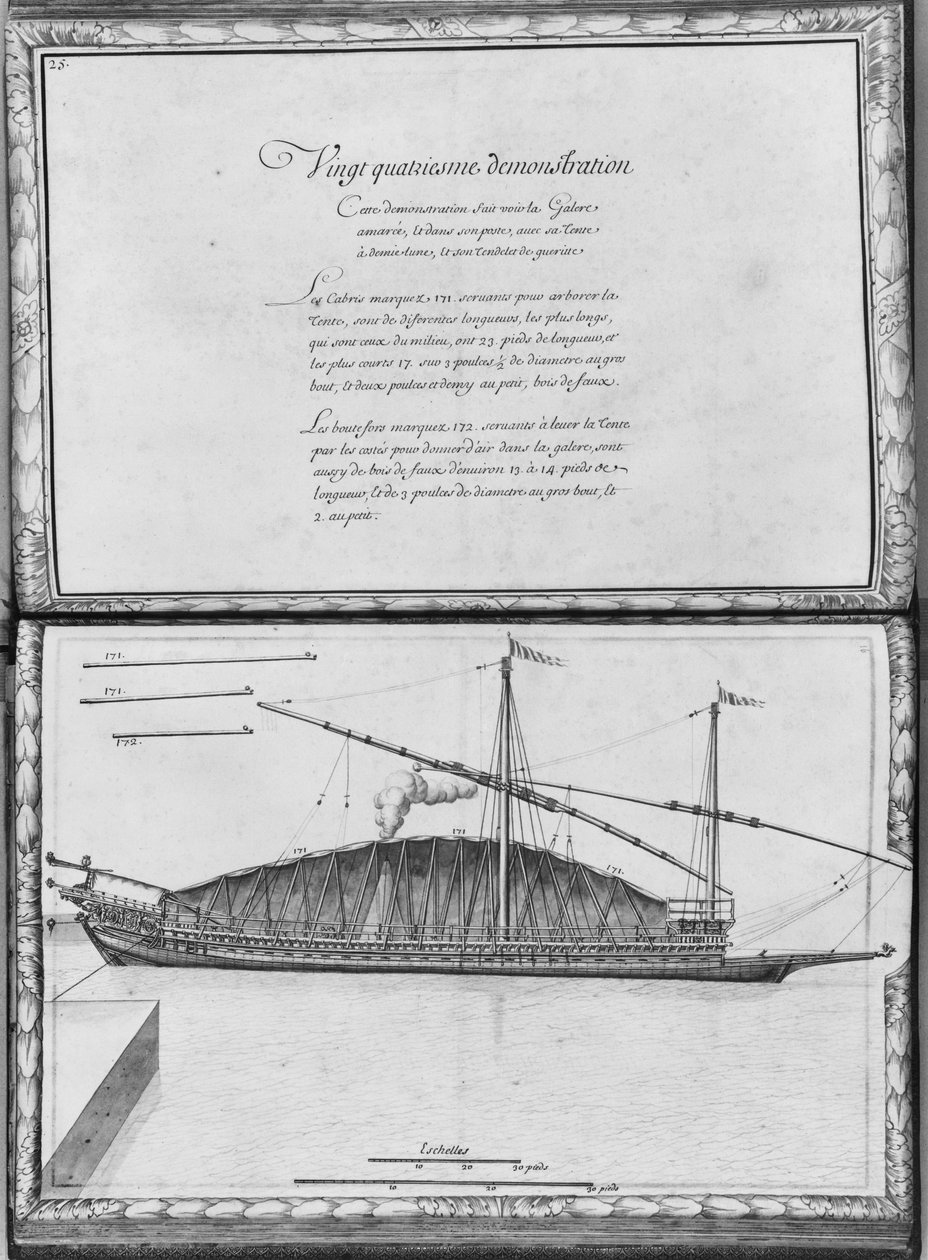 25.
Vingt quatriesme demonstration
Cette demonstration fait voir la Galere
amarée, Et dans son poste, avec sa Tente
à demie lune, Et son Tendelet de guerite
Les Cabris marquez 171. servants pour arborer la
Tente, sont de diferentes longueurs, les plus longs,
qui sont ceux du milieu, ont 23. pieds de longueur, et
les plus courts 17. sur 3 poulces ½ de diametre au gros
bout, Et deux poulces et demy au petit, bois de faux.
Les boutefors marquez 172. servants à lever la Tente
par les costés pour donner d'air dans la galere, sont
aussy de bois de faux d'environ 13. à 14. pieds de
longueur, Et de 3 poulces de diametre au gros bout, Et
2. au petit.
171.
171.
172.
171
171
171.
Eschelles
10 20 30 pieds
10 20 30 pieds